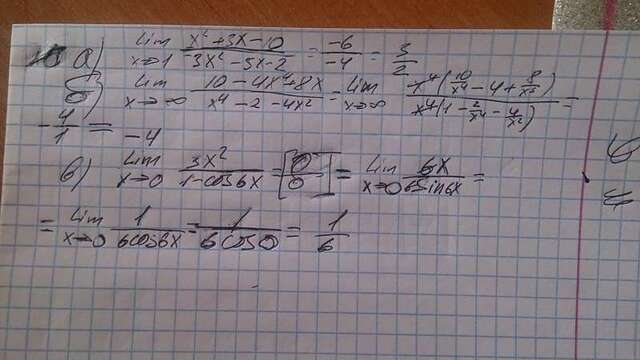 а) lim x→1 x²+3x-10 / 3x²-5x-2 = -6/-4 = 3/2
б) lim x→∞ 10-4x⁴+8x / x⁴-2-4x² = lim x→∞ x⁴(10/x⁴-4+8/x³) / x⁴(1-2/x⁴-4/x²) =
-4/1 = -4
в) lim x→0 3x² / 1-cos6x = [0/0] = lim x→0 6x / 6sin6x =
= lim x→0 1 / 6cos6x = 1 / 6cos0 = 1/6